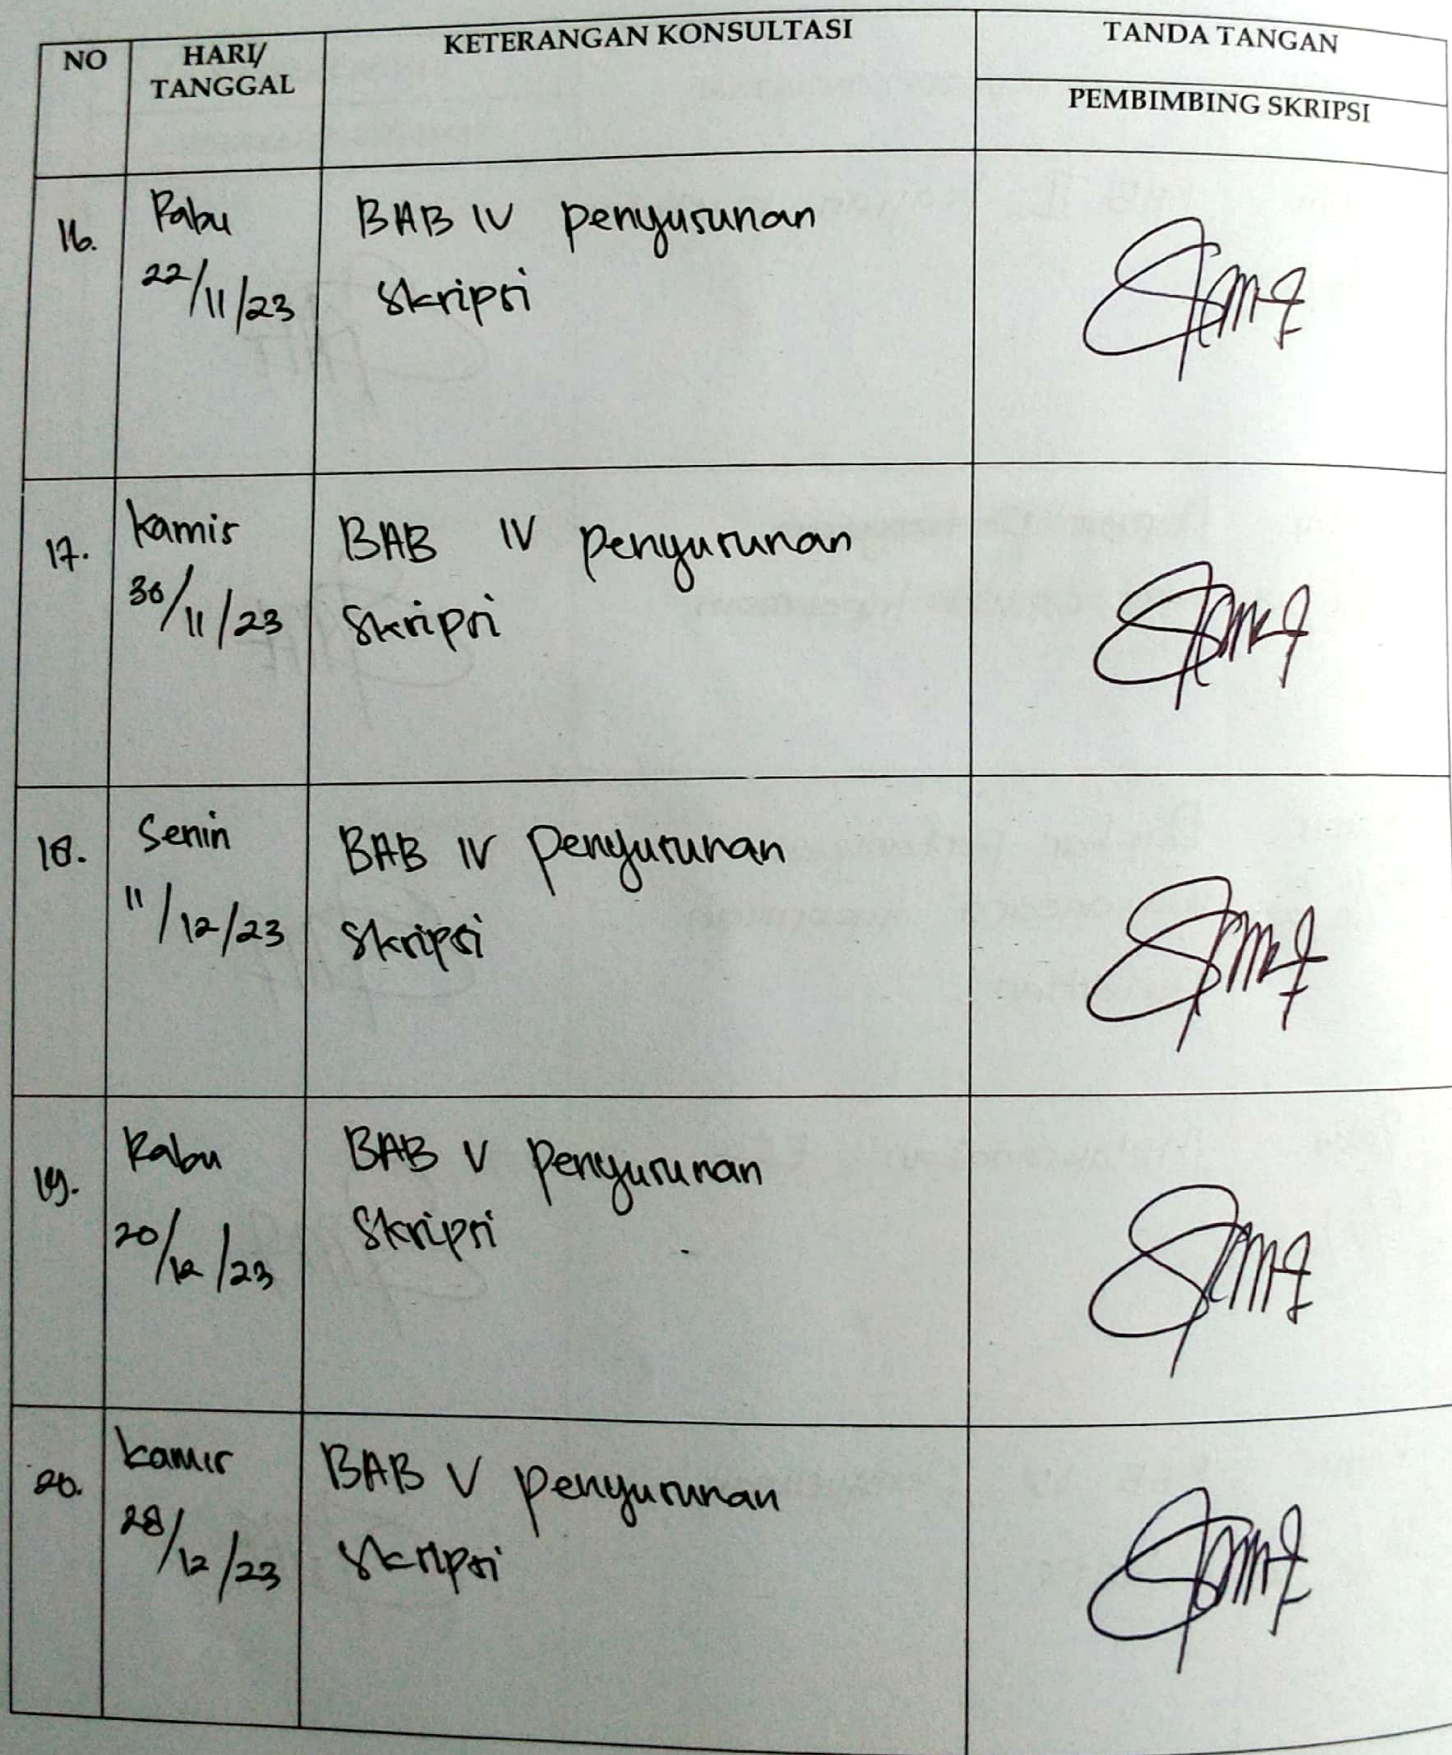 NO
HARI/
TANGGAL
KETERANGAN KONSULTASI
TANDA TANGAN
PEMBIMBING SKRIPSI
16.
Rabu
22/11/23
BAB IV penyusunan
skripsi
17.
kamis
30/11/23
BAB IV penyusunan
skripsi
18.
Senin
11/12/23
BAB IV penyusunan
skripsi
19.
Rabu
20/12/23
BAB V penyusunan
skripsi
20.
kamis
28/12/23
BAB V penyusunan
skripsi